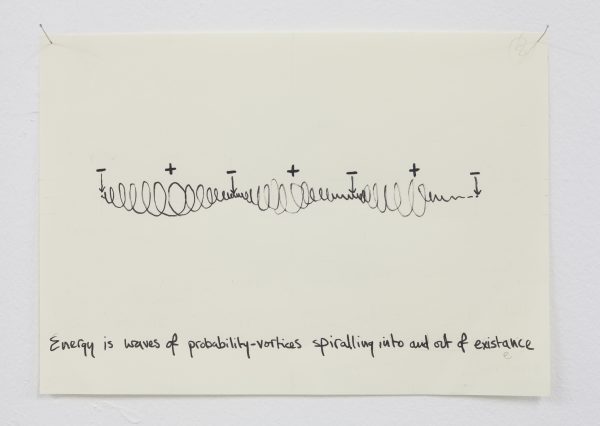 − + − + − + −
Energy is waves of probability-vortices spiralling into and out of existance
e